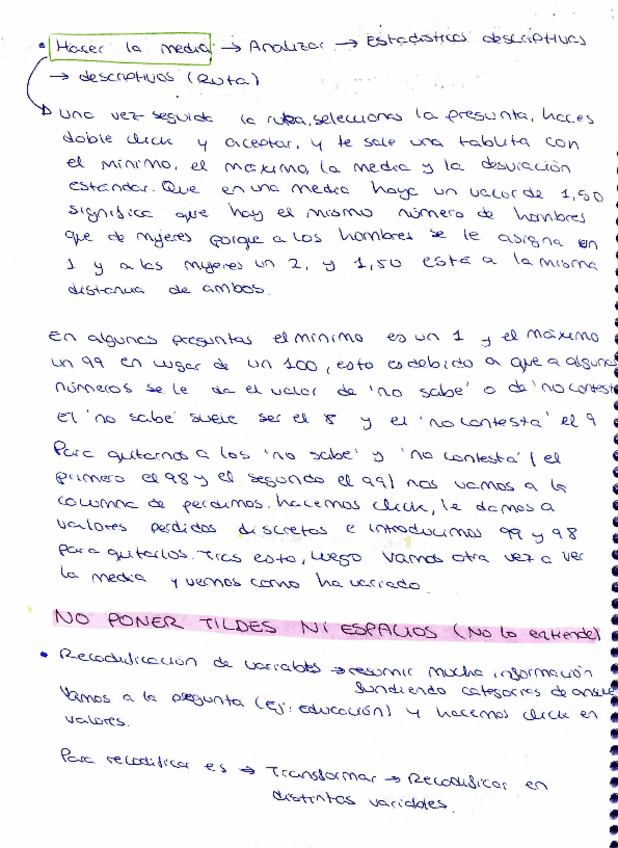 • Hacer la media → Analizar → Estadísticos descriptivos
→ descriptivos (Ruta)
Una vez seguida la ruta, seleccionas la pregunta, haces
doble click y aceptar, y te sale una tablita con
el mínimo, el máximo, la media y la desviación
estándar. Que en una media haya un valor de 1,50
significa que hay el mismo número de hombres
que de mujeres porque a los hombres se le asigna un
1 y a las mujeres un 2, y 1,50 está a la misma
distancia de ambos.
En algunas preguntas el mínimo es un 1 y el máximo
un 99 en lugar de un 100, esto es debido a que a algunos
números se le da el valor de 'no sabe' o de 'no contesta'
El 'no sabe' suele ser el 8 y el 'no contesta' el 9
Para quitarnos a los 'no sabe' y 'no contesta' (el
primero el 98 y el segundo el 99) nos vamos a la
columna de perdidos, hacemos click, le damos a
valores perdidos discretos e introducimos 99 y 98
para quitarlos. Tras esto, luego vamos otra vez a ver
la media y vemos como ha variado.
NO PONER TILDES NI ESPACIOS (No lo entiende)
• Recodificación de variables → resumir mucha información
fundiendo categorías de
Vamos a la pregunta (ej: educación) y hacemos click en
valores.
Para recodificar es → Transformar → Recodificar en
distintas variables.